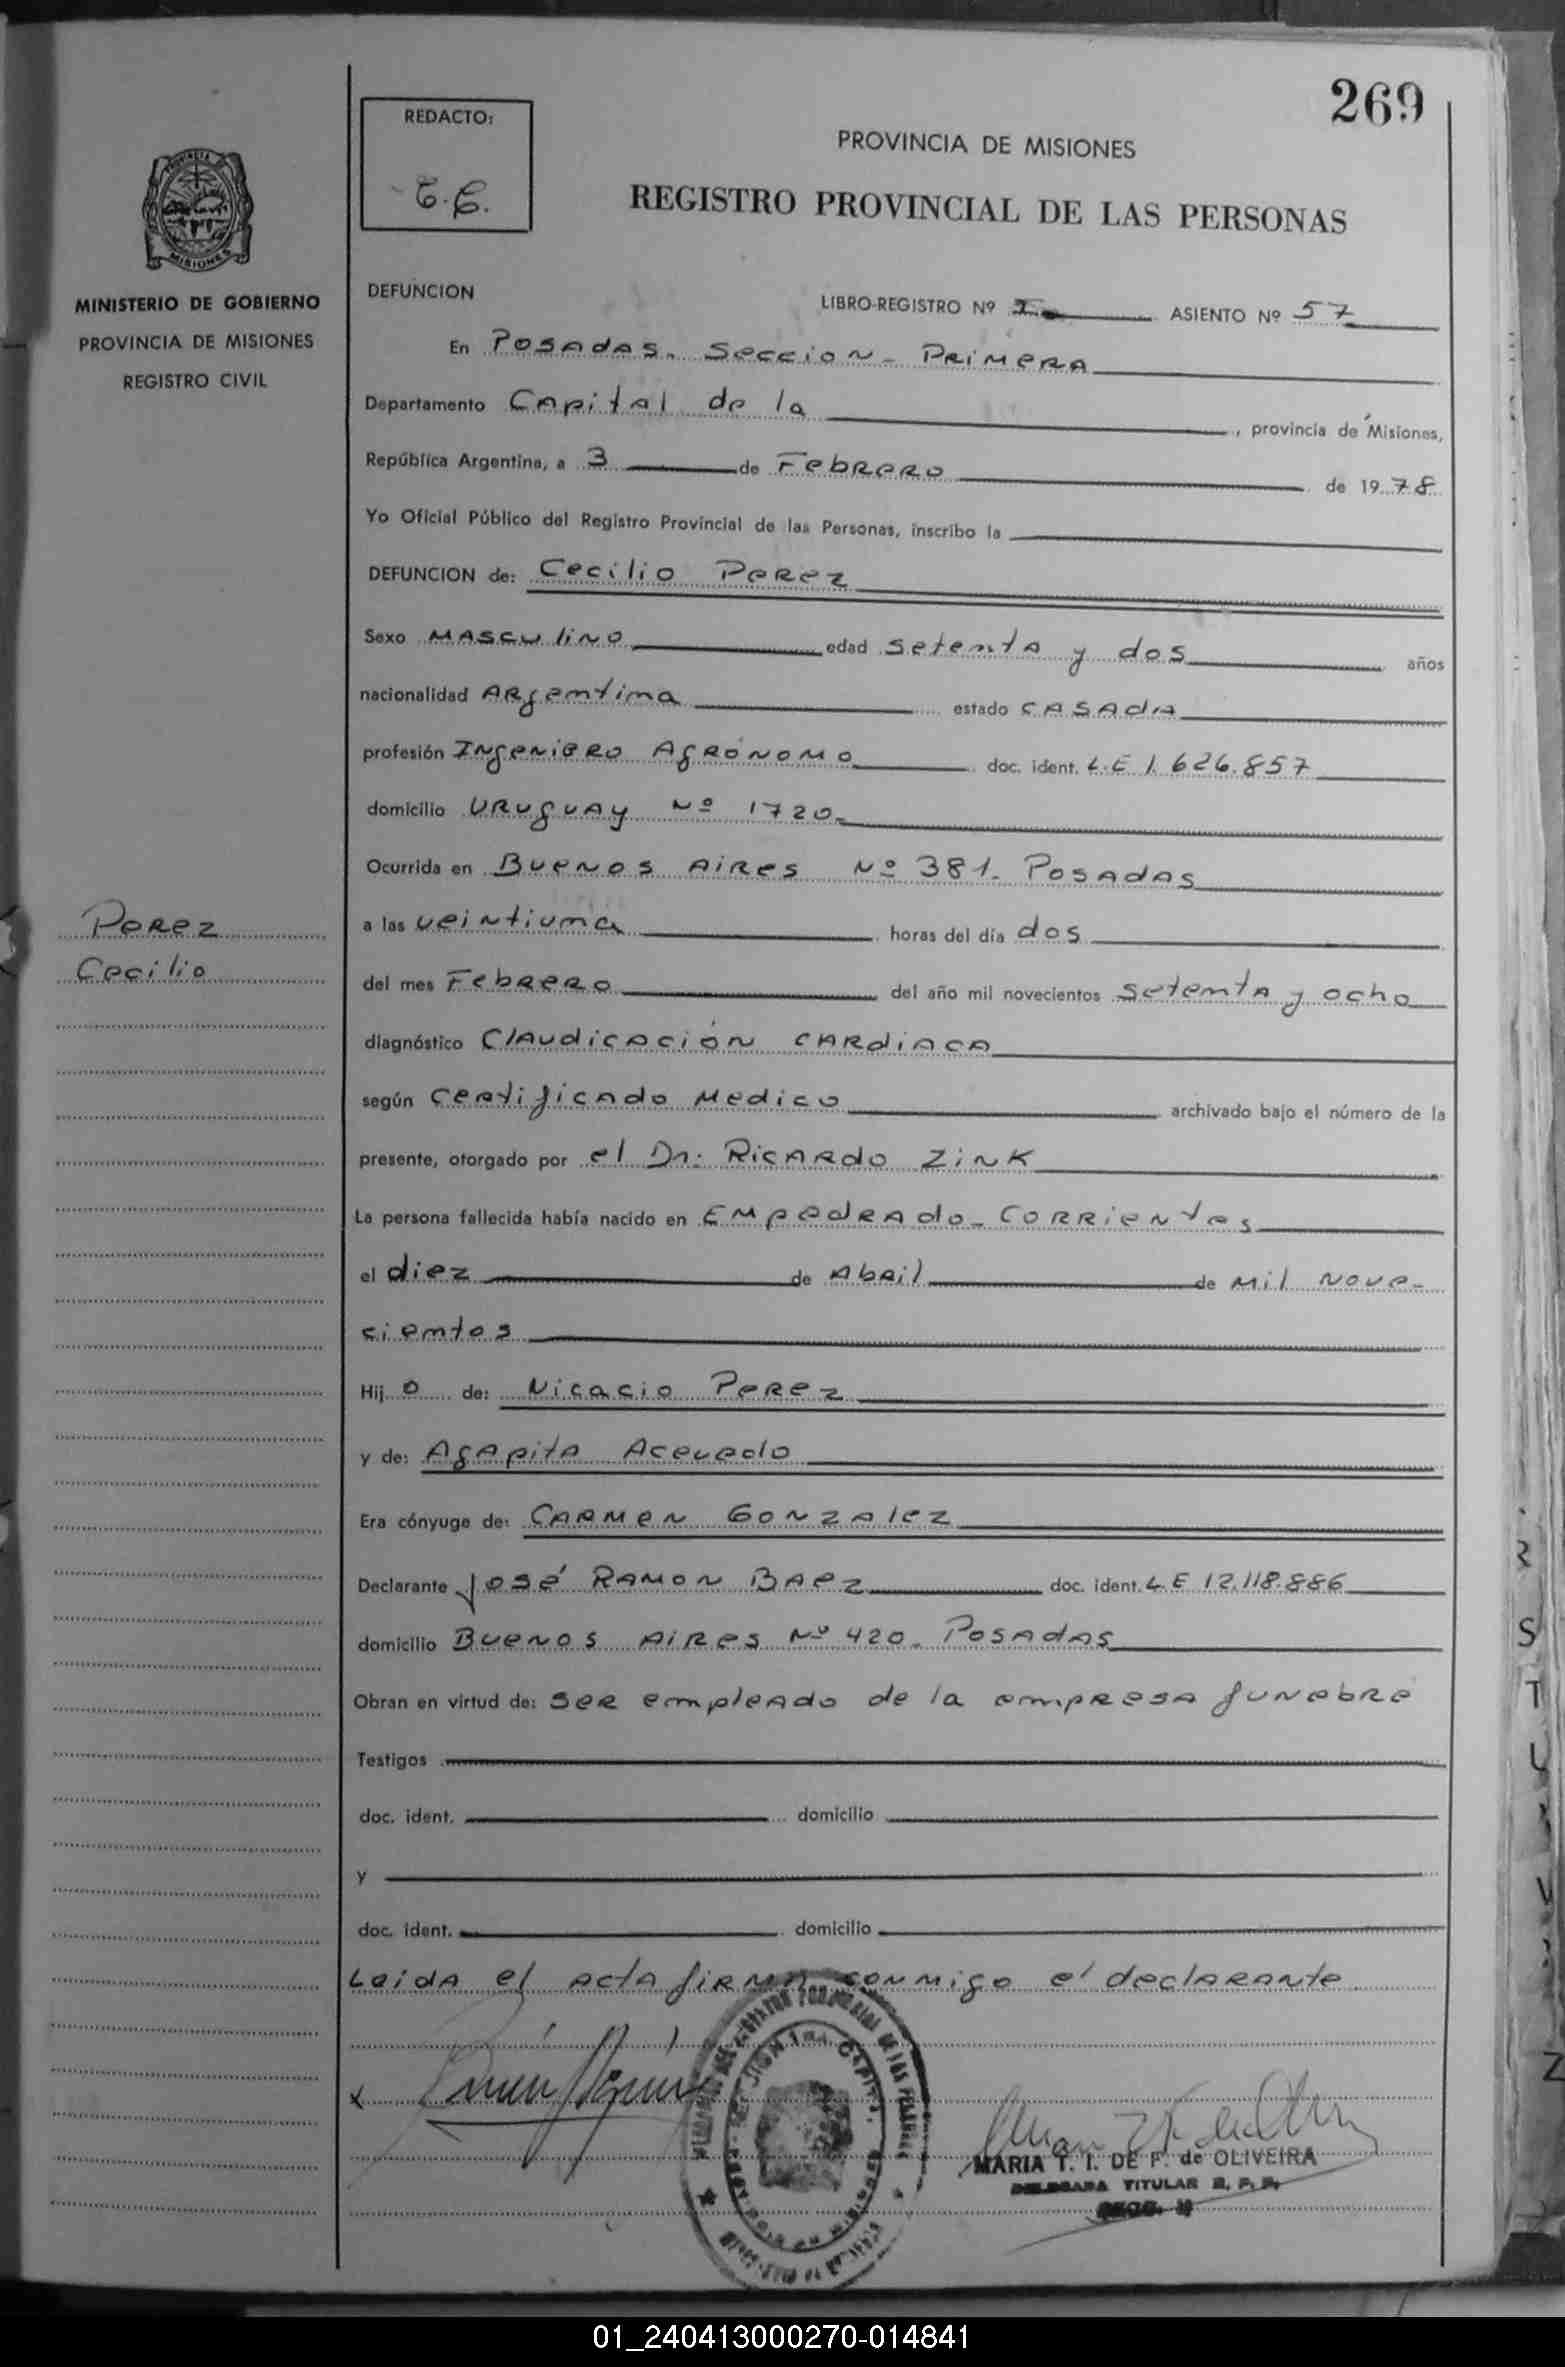 269
REDACTO:
PROVINCIA DE MISIONES
REGISTRO PROVINCIAL DE LAS PERSONAS
MISIONES
MINISTERIO DE GOBIERNO
PROVINCIA DE MISIONES
REGISTRO CIVIL
DEFUNCION
LIBRO-REGISTRO Nº I ASIENTO Nº 57
En Posadas. Seccion - Primera
Departamento Capital de la, provincia de Misiones,
República Argentina, a 3 de Febrero de 1978
Yo Oficial Público del Registro Provincial de las Personas, inscribo la
DEFUNCION de: Cecilio Perez
Sexo Masculino edad setenta y dos años
nacionalidad Argentina estado casada
profesión Ingeniero Agrónomo doc. ident. L.E 1.626.857
domicilio Uruguay Nº 1720-
Ocurrida en Buenos Aires Nº 381- Posadas
Perez
Cecilio
a las veintiuna horas del día dos
del mes Febrero del año mil novecientos setenta y ocho
diagnóstico Claudicación cardiaca
según Certificado Medico archivado bajo el número de la
presente, otorgado por el Dr. Ricardo Zink
La persona fallecida había nacido en Empedrado - Corrientes
el diez de Abril de mil nove-
cientos
Hij o de: Nicacio Perez
y de: Agapita Acevedo
Era cónyuge de: Carmen Gonzalez
Declarante José Ramon Baez doc. ident. L.E 12.118.886
domicilio Buenos Aires Nº 420- Posadas
Obran en virtud de: ser empleado de la empresa funebre
Testigos
doc. ident. domicilio
y
doc. ident. domicilio
Leida el acta firma conmigo el declarante
MARIA T. I. DE F. de OLIVEIRA
DELEGADA TITULAR R. P. P.
01_240413000270-014841